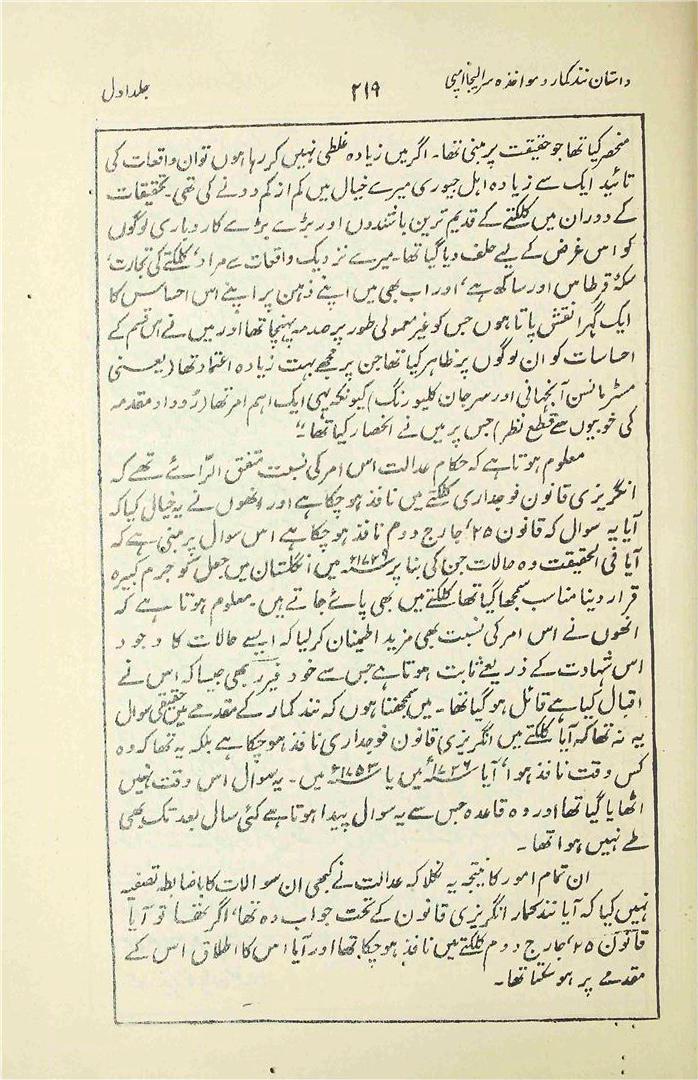 داستان نندکمار و مواخذہ سر الیجا امپی
۲۱۹
جلد اول
منحصر کیا تھا جو حقیقت پر مبنی تھا۔ اگر میں زیادہ غلطی نہیں کر رہا ہوں تو ان واقعات کی
تائید ایک سے زیادہ اہل جیوری میرے خیال میں کم از کم دو نے کی تھی۔ تحقیقات
کے دوران میں کلکتے کے قدیم ترین باشندوں اور بڑے بڑے کاروباری لوگوں
کو اس غرض کے لیے حلف دیا گیا تھا۔ میرے نزدیک واقعات سے مراد، کلکتے کی تجارت،
سکۂ قرطاس اور ساکھ ہے، اور اب بھی میں اپنے ذہن پر اپنے اس احساس کا
ایک گہرا نقش پاتا ہوں جس کو غیر معمولی طور پر صدمہ پہنچا تھا اور میں نے اس قسم کے
احساسات کو ان لوگوں پر ظاہر کیا تھا جن پر مجھے بہت زیادہ اعتماد تھا (یعنی
مسٹر مانسن آنجہانی اور سر جان کلیورنگ) کیونکہ یہی ایک اہم امر تھا (روداد مقدمہ
کی خوبیوں سے قطع نظر) جس پر میں نے انحصار کیا تھا۔"
معلوم ہوتا ہے کہ حکام عدالت اس امر کی نسبت متفق الرائے تھے کہ
انگریزی قانون فوجداری کلکتے میں نافذ ہو چکا ہے اور انھوں نے یہ خیال کیا کہ
آیا یہ سوال کہ قانون ۲۵، جارج دوم نافذ ہو چکا ہے اس سوال پر مبنی ہے کہ
آیا فی الحقیقت وہ حالات جن کی بنا پر ۱۷۲۹ء میں انگلستان میں جعل کو جرم کبیرہ
قرار دینا مناسب سمجھا گیا تھا کلکتے میں بھی پائے جاتے ہیں۔ معلوم ہوتا ہے کہ
انھوں نے اس امر کی نسبت بھی مزید اطمینان کر لیا کہ ایسے حالات کا وجود
اس شہادت کے ذریعے ثابت ہوتا ہے جس سے خود فیرر بھی جیسا کہ اس نے
اقبال کیا ہے قائل ہو گیا تھا۔ میں سمجھتا ہوں کہ نند کمار کے مقدمے میں حقیقی سوال
یہ نہ تھا کہ آیا کلکتے میں انگریزی قانون فوجداری نافذ ہو چکا ہے بلکہ یہ تھا کہ وہ
کس وقت نافذ ہوا، آیا ۱۷۲۶ء میں یا ۱۷۵۳ء میں۔ یہ سوال اس وقت نہیں
اٹھایا گیا تھا اور وہ قاعدہ جس سے یہ سوال پیدا ہوتا ہے کئی سال بعد تک بھی
طے نہیں ہوا تھا۔
ان تمام امور کا نتیجہ یہ نکلا کہ عدالت نے کبھی ان سوالات کا باضابطہ تصفیہ
نہیں کیا کہ آیا نندکمار انگریزی قانون کے تحت جواب دہ تھا، اگر تھا تو آیا
قانون ۲۵، جارج دوم کلکتے میں نافذ ہو چکا تھا اور آیا اس کا اطلاق اس کے
مقدمے پر ہو سکتا تھا۔